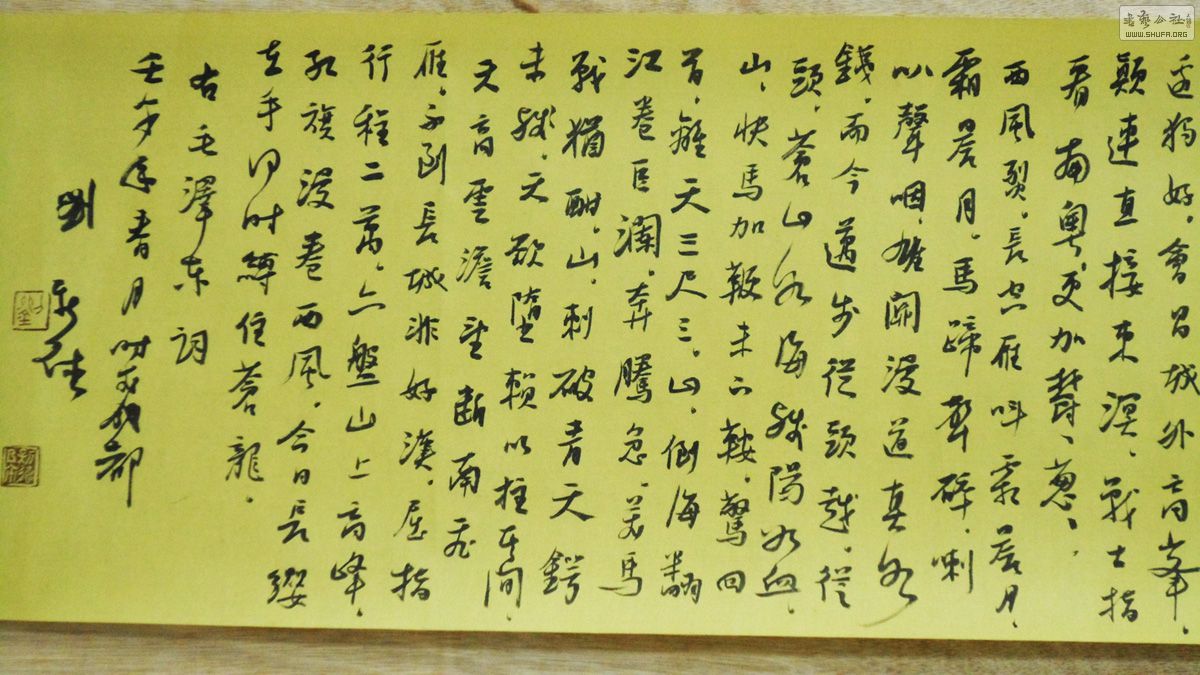 邊獨好,會昌城外高峯,
顛連直接東溟、戰士指
看南粵更加鬱、蔥、.
西風烈,長空雁叫霜晨月,
霜晨月。馬蹄聲碎,喇
叭聲咽,雄關漫道真如
鐵,而今邁步從頭越,從
頭,蒼山如海殘陽如血.
山,快馬加鞭未下鞍,驚回
首,離天三尺三。山,倒海翻
江卷巨瀾,奔騰急,萬馬
戰猶酣,山,刺破青天鍔
未殘,天欲墮賴以拄其間,
天高雲淡望斷南飛
雁,不到長城非好漢,屈指
行程二萬。六盤山上高峰,
紅旗漫卷西風,今日長纓
在手何時縛住蒼龍.
右毛澤東詞
壬午年春月时於成都
劉
書藝公社
WWW.SHUFA.ORG